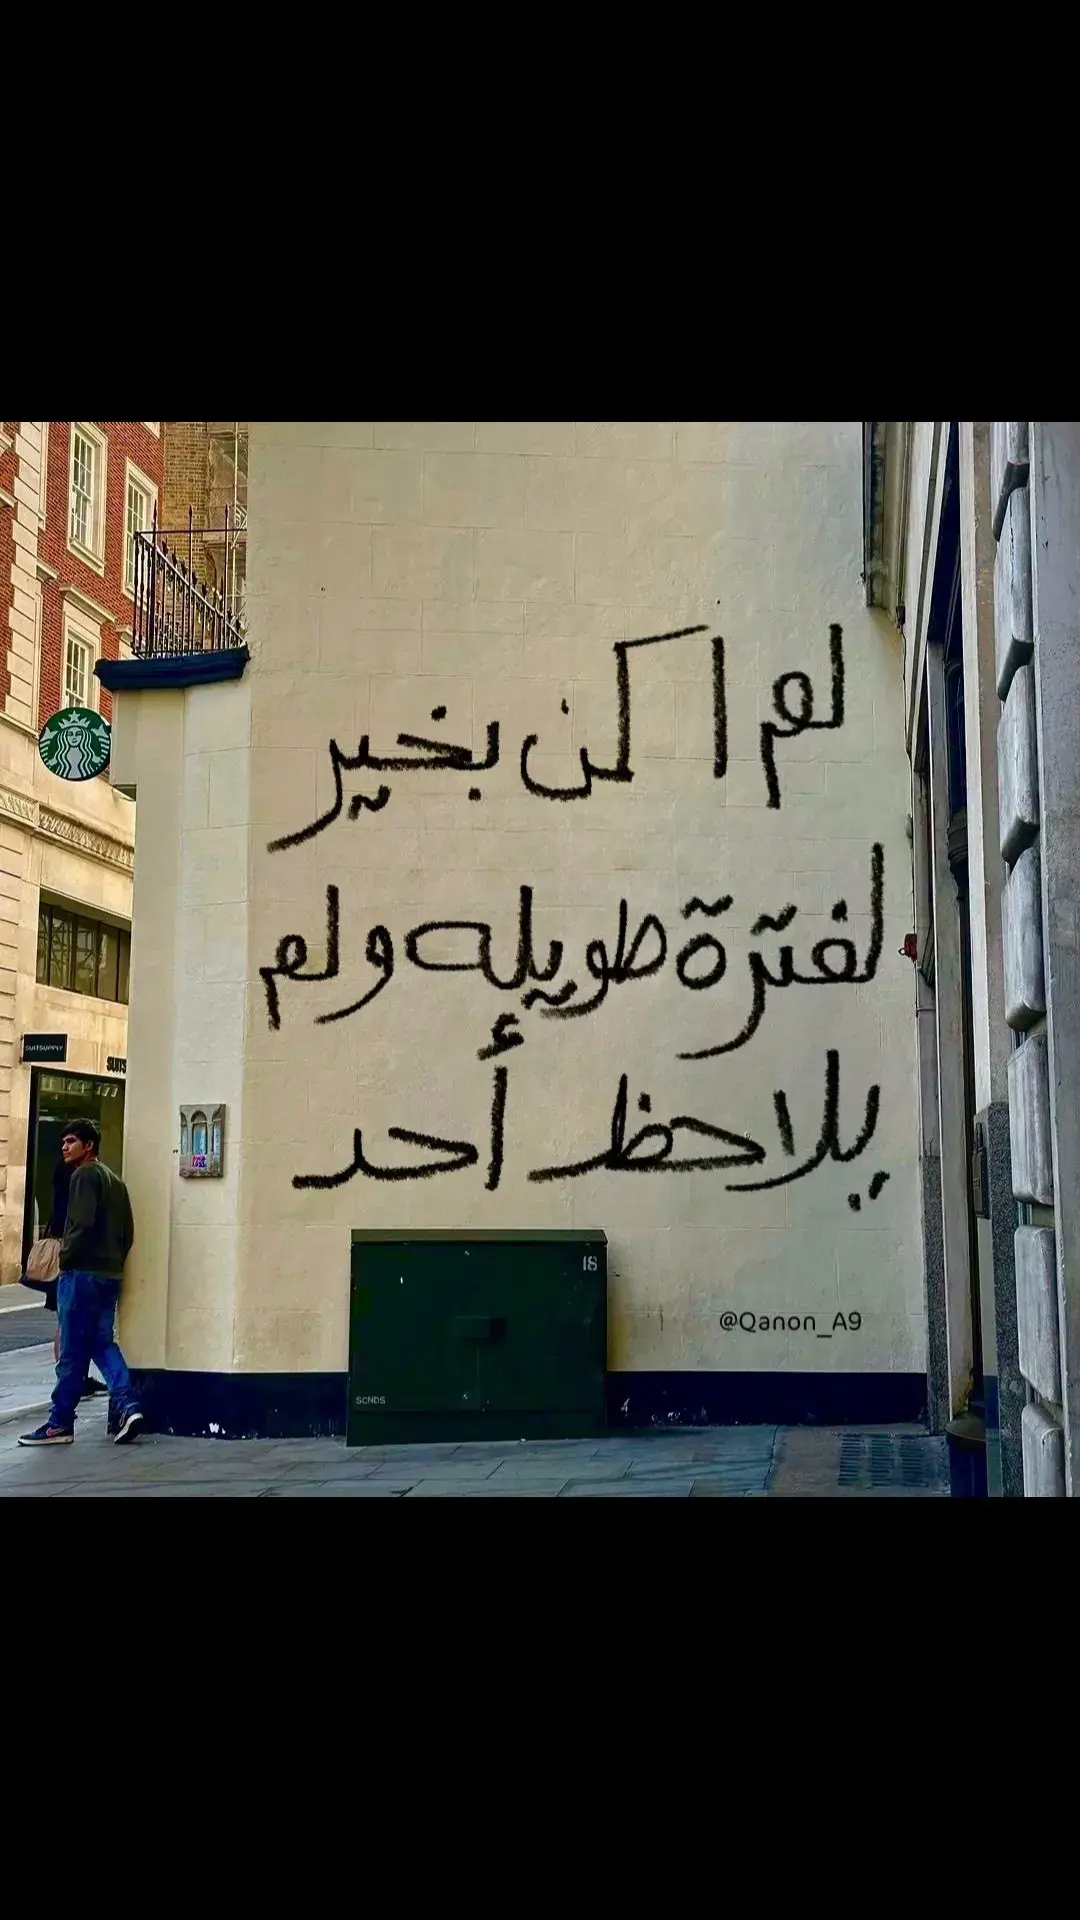 لم اكن بخير
لفترة طويله ولم
يلاحظ أحد
SUITSUPPLY
SUITS
18
SCNDS
@Qanon_A9